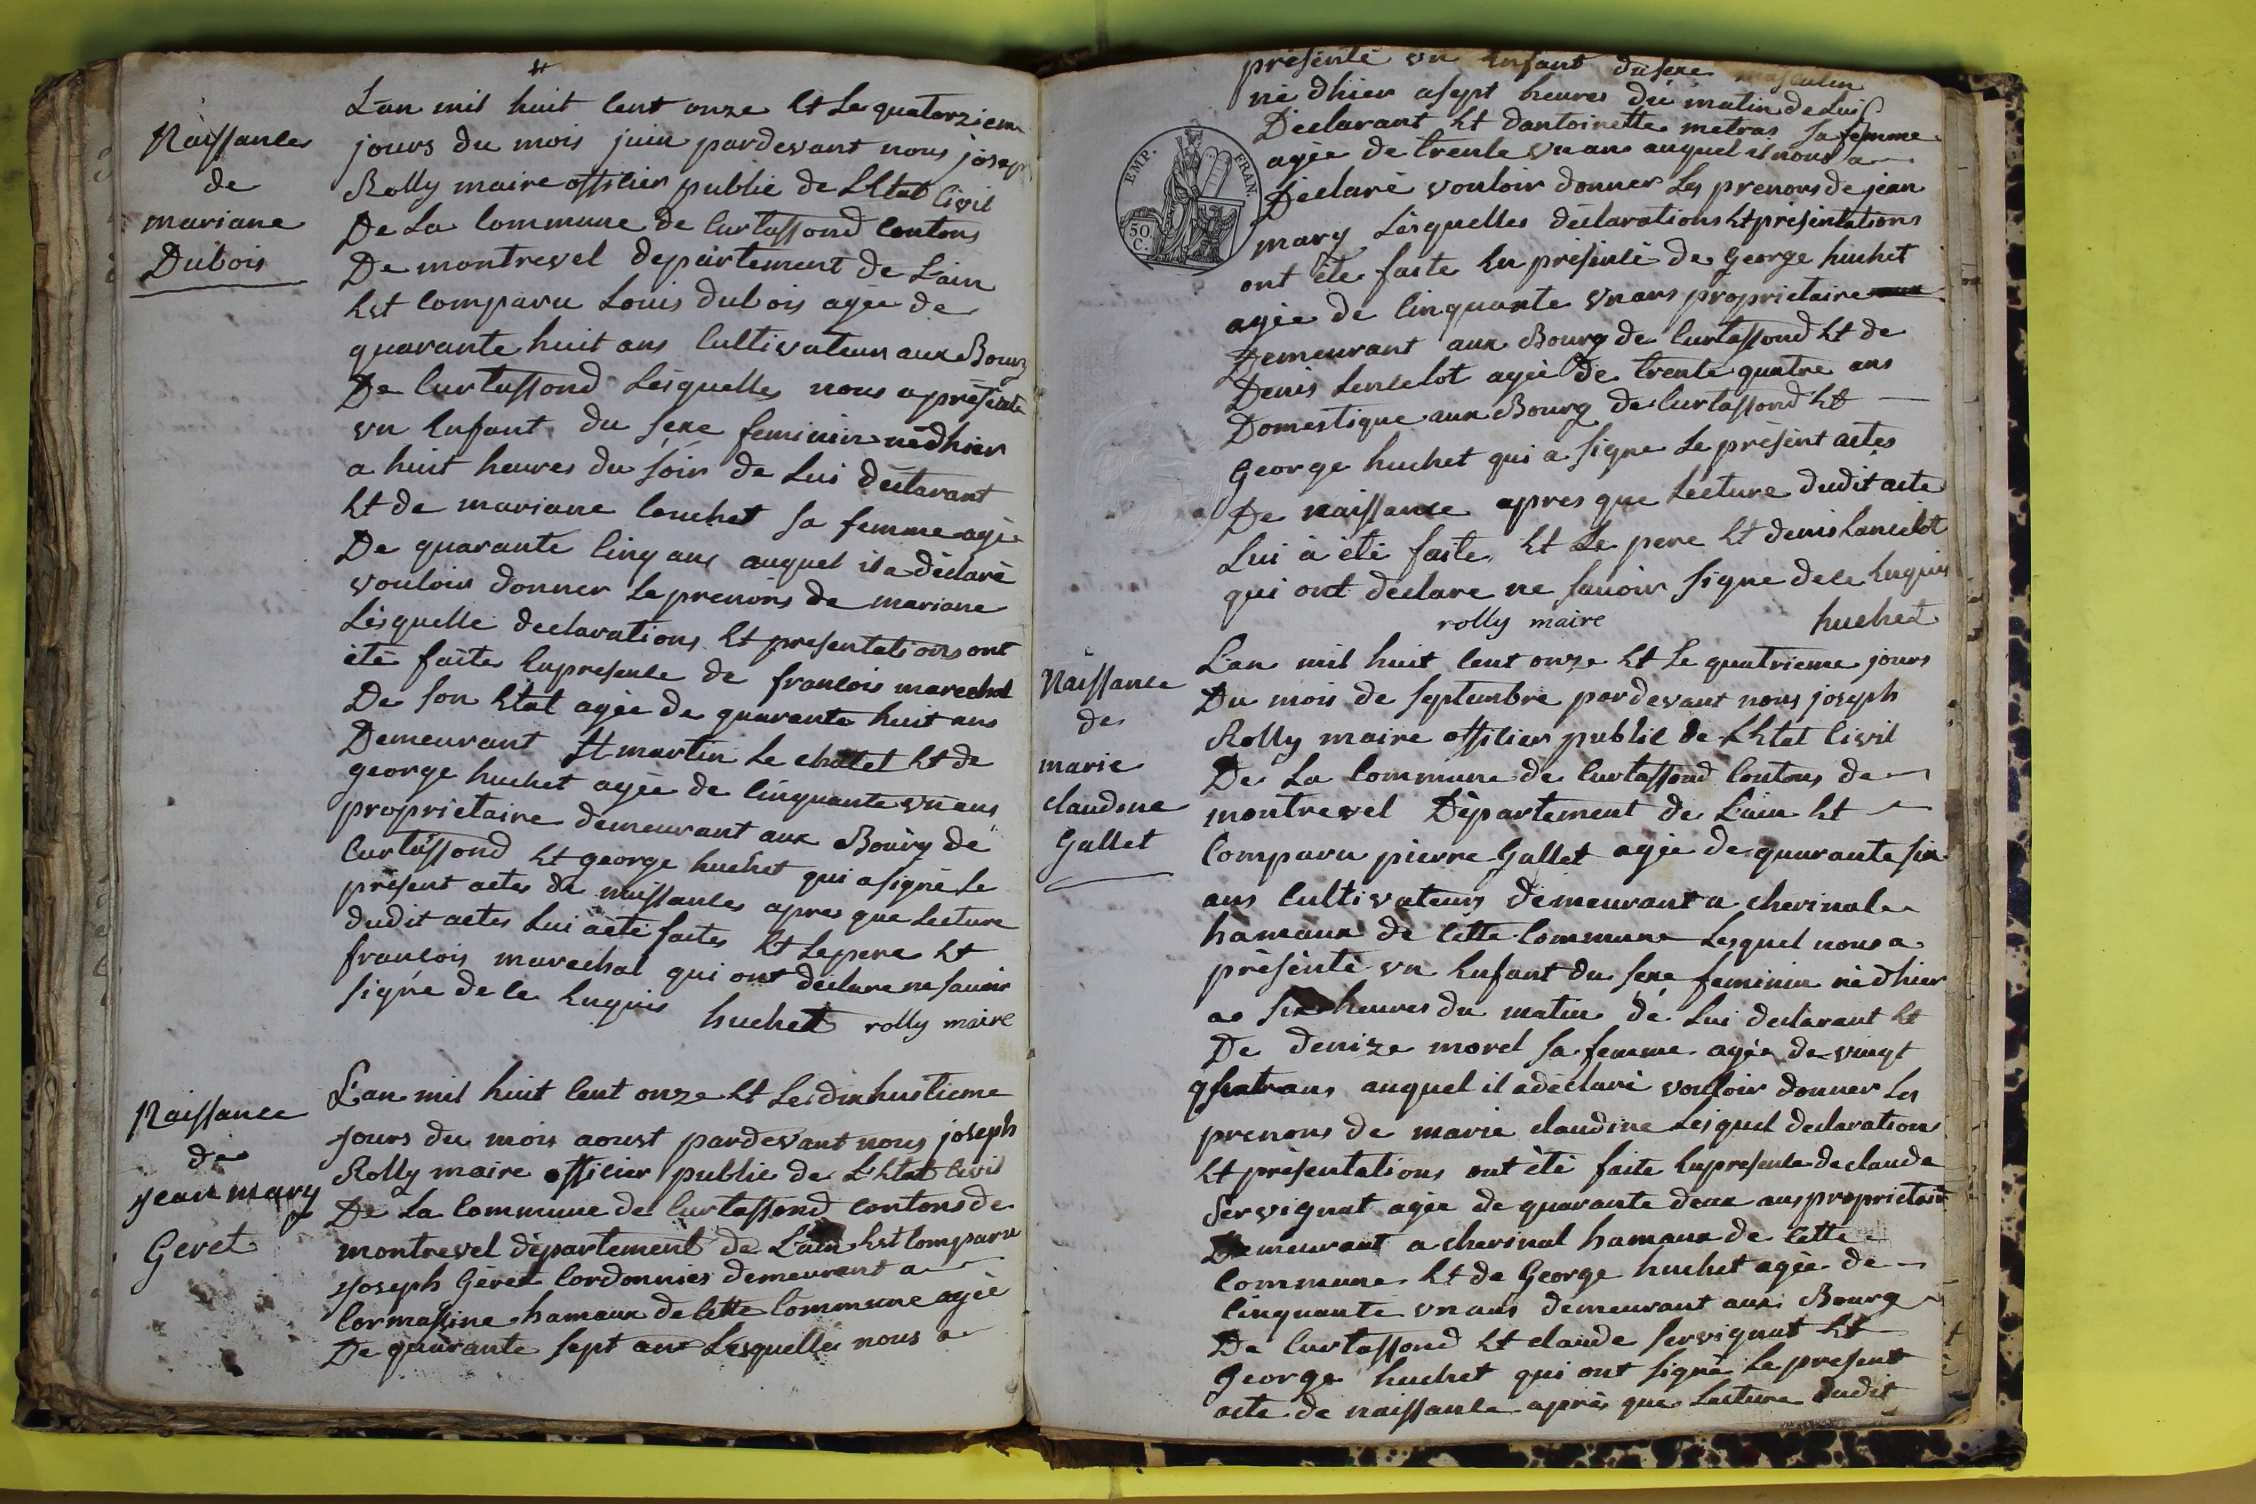 Naissances
de
mariane
Dubois
L'an mil huit cent onze Et Le quatorziem
jours du mois juin pardevant nous josep
Rolly maire officier public de L'Etat Civil
De La Commune de Curtassond Contons
De montrevel departement de L'ain
Est Comparu Louis dubois agée de
quarante huit ans Cultivateur aux Bourg
De Curtassond Lesquelles nous a présenté
un Enfant du sexe feminin né d'hier
a huit heures du soir de Lui déclarant
Et de mariane Couchet sa femme agée
De quarante Cinq ans auquel il a déclaré
vouloir donner Le prenons de mariane
Lesquelle declarations Et presentations ont
été faite En presence de francois marechal
De son Etat agée de quarante huit ans
Demeurant St martin Le chatel Et de
george huchet agée de Cinquante un ans
proprietaire demeurant aux Bourg de
Curtassond Et george huchet qui a signé Le
present actes de naissances apres que Lecture
dudit actes Lui a eté faites Et Le pere Et
francois marechal qui ont déclare ne savoir
signé de ce Enquis
huchet rolly maire
Naissance
de
jean mary
Geret
L'an mil huit Cent onze Et Le dixhuitieme
jours du mois aoust pardevant nous joseph
Rolly maire officier public de L'Etat Civil
De La Commune de Curtassond Contons de
montrevel département de L'ain Est Comparu
joseph Géret Cordonnier demeurant a
Cormassine hamaux de Cette Commune agée
De quarante sept ans Lesquelles nous a
présenté un Enfant du sexe masculin
né d'hier a sept heures du matin de Lui
Déclarant Et d'antoinette metras sa femme
agée de trente un ans auquel il nous a
Déclaré vouloir donner Les prenons de jean
mary Lesquelles déclarations Et présentations
ont été faite En présence de George huchet
agée de Cinquante un ans proprietaire
Demeurant aux Bourg de Curtassond Et de
Denis Lencelot agée De trente quatre ans
Domestique aux Bourg de Curtassond Et
George huchet qui a signe Le présent actes
De naissance apres que Lecture dudit acte
Lui à été faite Et Le pere Et denis Lancelot
qui ont declare ne savoir signe de ce Enquis
rolly maire huchet
EMP. FRAN.
50
C.
Naissance
de
marie
claudine
Gallet
L'an mil huit Cent onze Et Le quatrieme jours
Du mois de septembre pardevant nous joseph
Rolly maire officier public de L'Etat Civil
De La Commune de Curtassond Contons de
montrevel Département de L'ain Et
Comparu pierre Gallet agée de quarante six
ans Cultivateurs demeurant a cherinal
hamaux de Cette Commune Lesquel nous a
présenté un Enfant du sexe feminin né d'hier
a six heures du matin de Lui declarant Et
De denize morel sa femme agée de vingt
quatrans auquel il a déclaré vouloir donner Les
prenons de marie claudine Lesquel declarations
Et présentations ont été faite En presence de claude
servignat agée de quarante deux ans proprietair
Demeurant a cherinal hamaux de Cette
Commune Et de George huchet agée de
Cinquante un ans demeurant aux Bourg
De Curtassond Et claude servignat Et
George huchet qui ont signé Le present
acte de naissance après que Lecture dudit